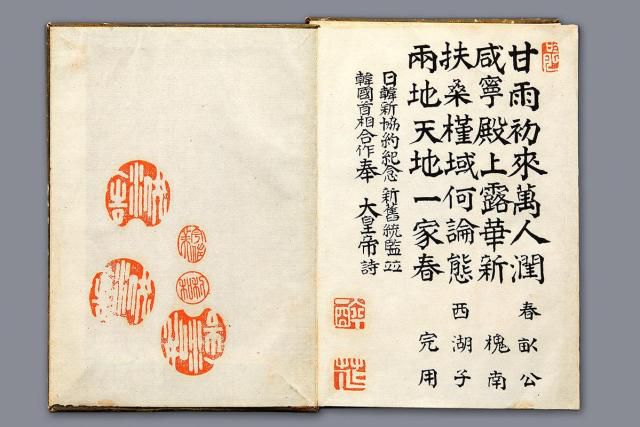 甘雨初來萬人潤 春畝公
咸寧殿上露華新 槐南
扶桑槿域何論態 西湖子
兩地天地一家春 完用
日韓新協約紀念 新舊統監並
韓國首相合作奉 大皇帝詩